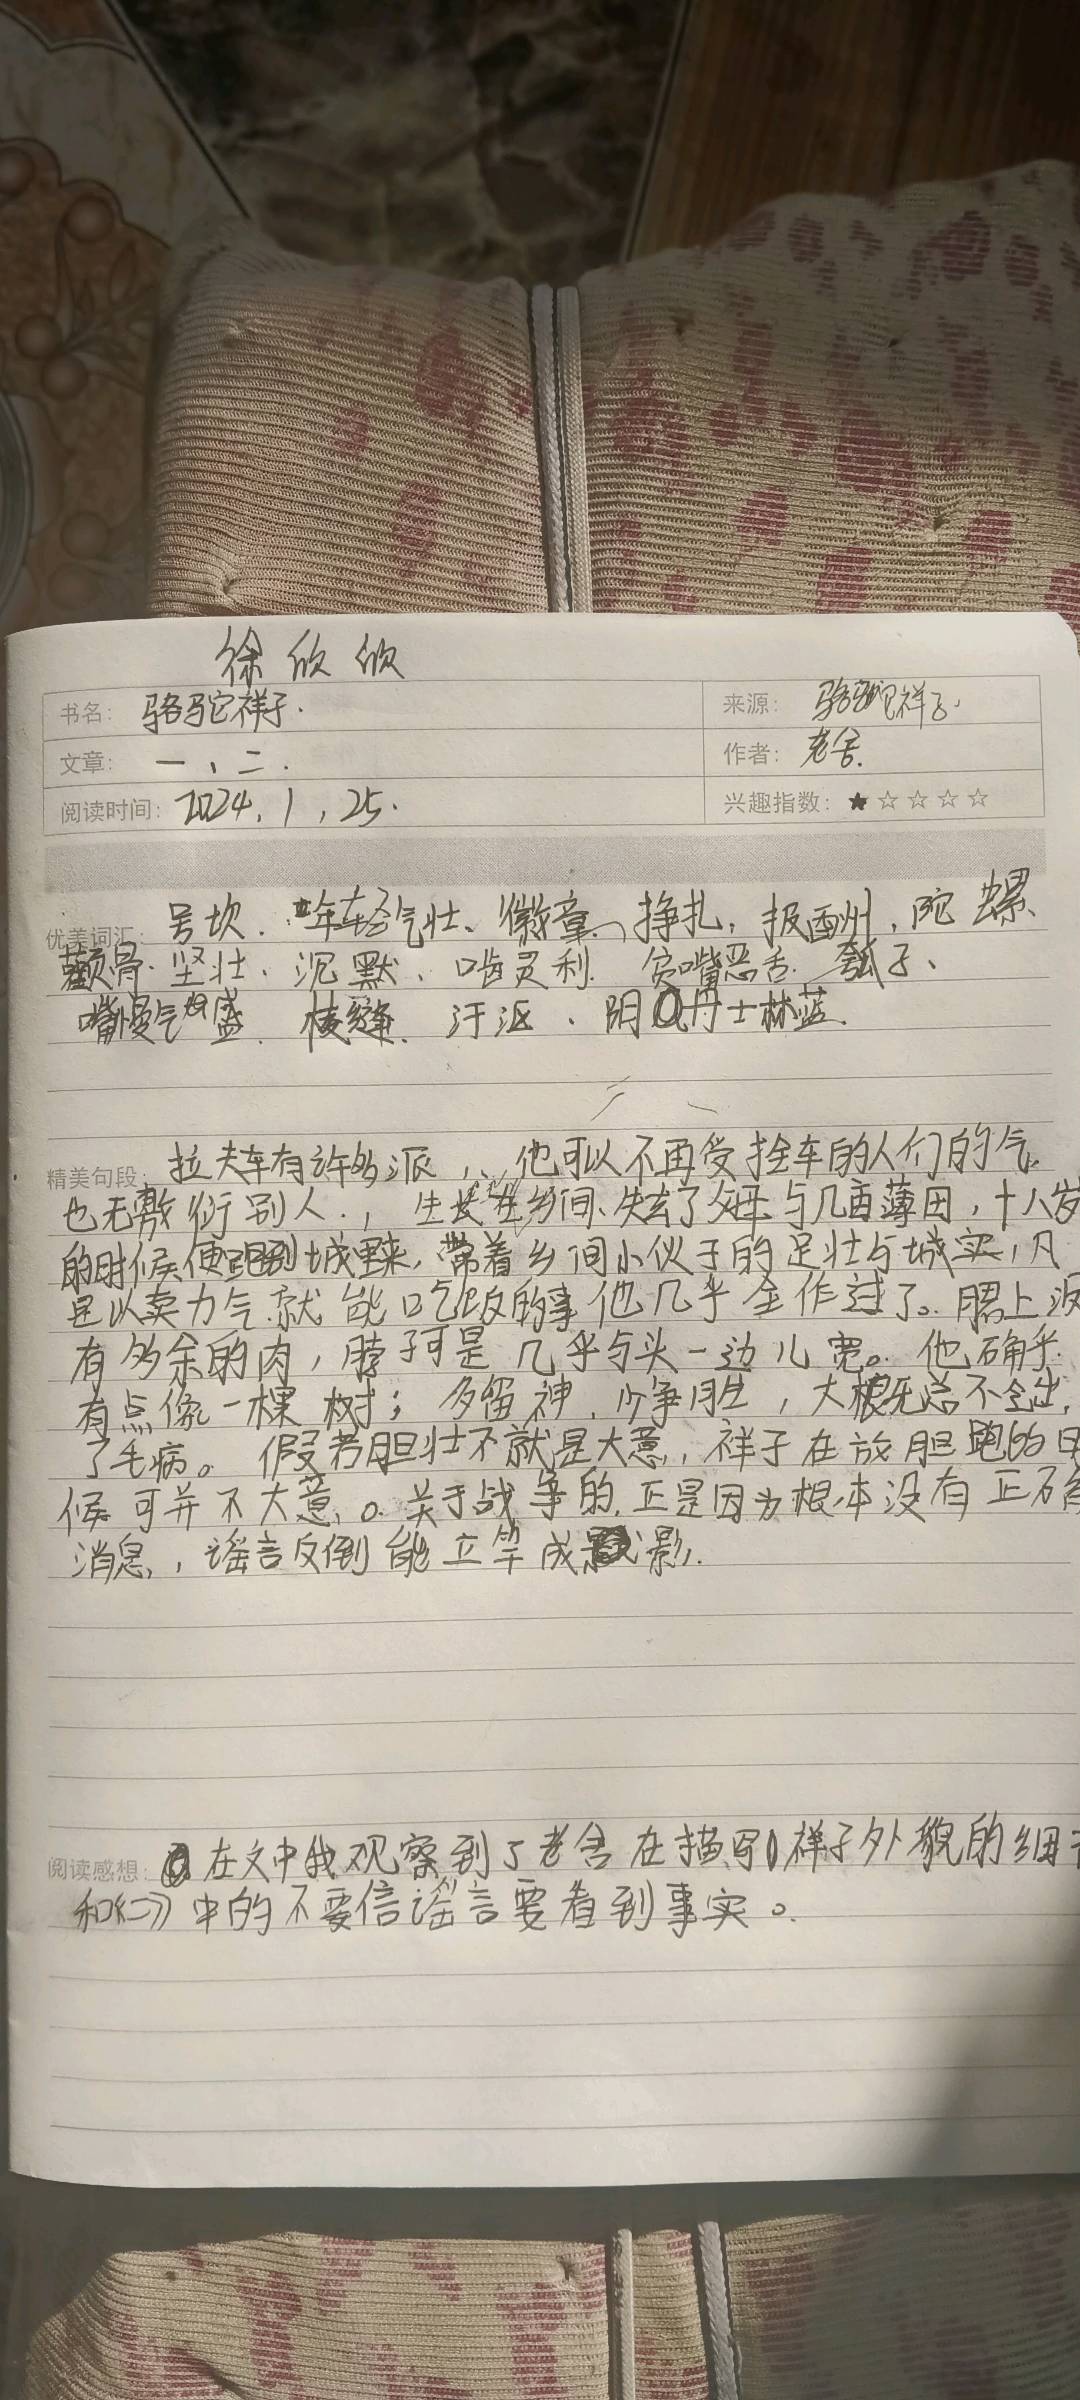 徐欣欣
书名: 骆驼祥子. 来源: 骆驼祥子.
文章: 一、二. 作者: 老舍.
阅读时间: 2024.1.25. 兴趣指数: ★☆☆☆☆
优美词汇: 号坎. 年轻气壮、徽章、挣扎, 报酬, 陀螺、
颧骨. 坚壮、沉默、啃灵利. 贫嘴恶舌. 瓠子、
嘴慢气盛. 棱缝. 汗 阴丹士林蓝.
精美句段: 拉夫车有许多派, 他可以不再受拴车的人们的气,
也无敷衍别人., 生长在乡间、失去了父母与几亩薄田, 十八岁
的时候便跑到城里来, 带着乡间小伙子的足壮与城实, 凡
是以卖力气就能吃饭的事他几乎全作过了。腮上没
有多余的肉, 脖子可是几乎与头一边儿宽。他确乎
有点像一棵树; 多留神, 少争胜, 大概总不会出,
了毛病。假若胆壮不就是大意, 祥子在放胆跑的
候可并不大意。关于战争的, 正是因为根本没有正确
消息, 谣言反倒能立竿成影.
阅读感想: 在文中我观察到了老舍在描写祥子外貌的细
和《二》中的不要信谣言要看到事实。